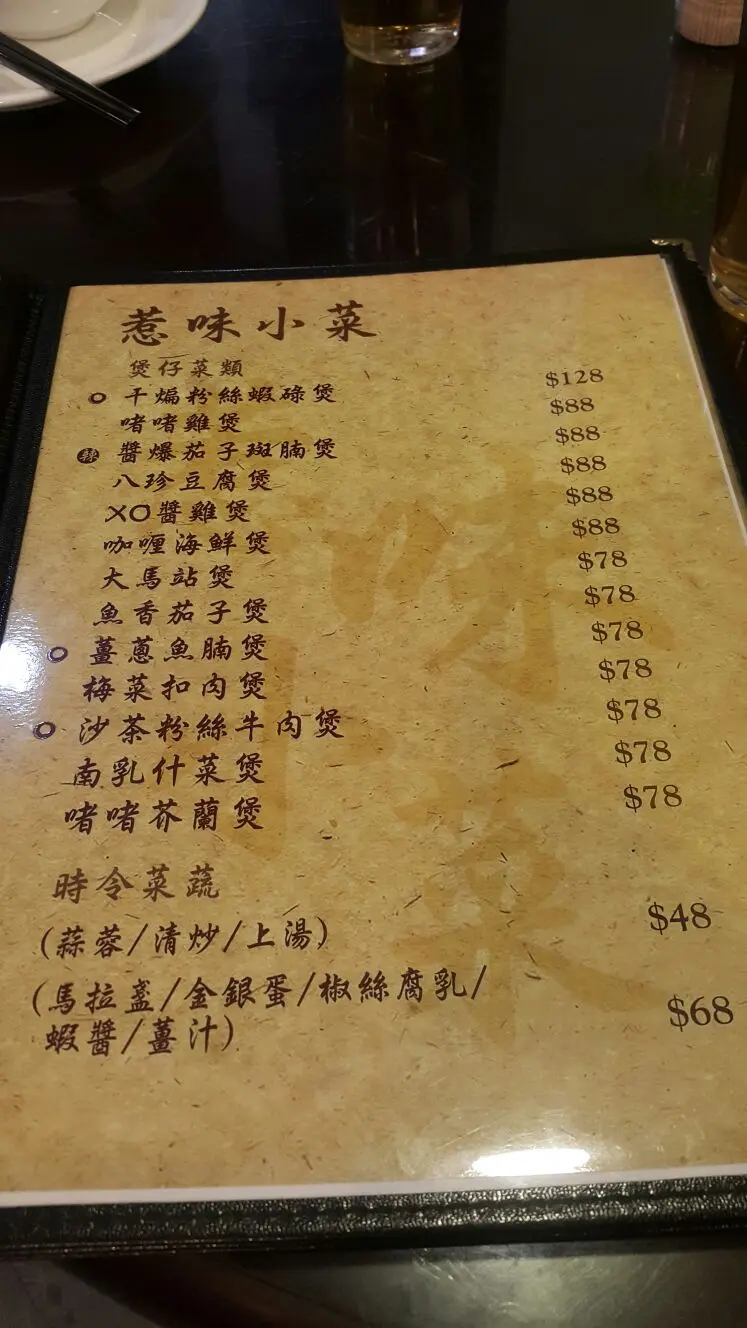 惹味小菜
煲仔菜類
干煸粉絲蝦碌煲 $128
啫啫雞煲 $88
辣 醬爆茄子斑腩煲 $88
八珍豆腐煲 $88
XO醬雞煲 $88
咖喱海鮮煲 $88
大馬站煲 $78
魚香茄子煲 $78
薑蔥魚腩煲 $78
梅菜扣肉煲 $78
沙茶粉絲牛肉煲 $78
南乳什菜煲 $78
啫啫芥蘭煲 $78
時令菜蔬
(蒜蓉/清炒/上湯) $48
(馬拉盞/金銀蛋/椒絲腐乳/
蝦醬/薑汁) $68
味
小
菜